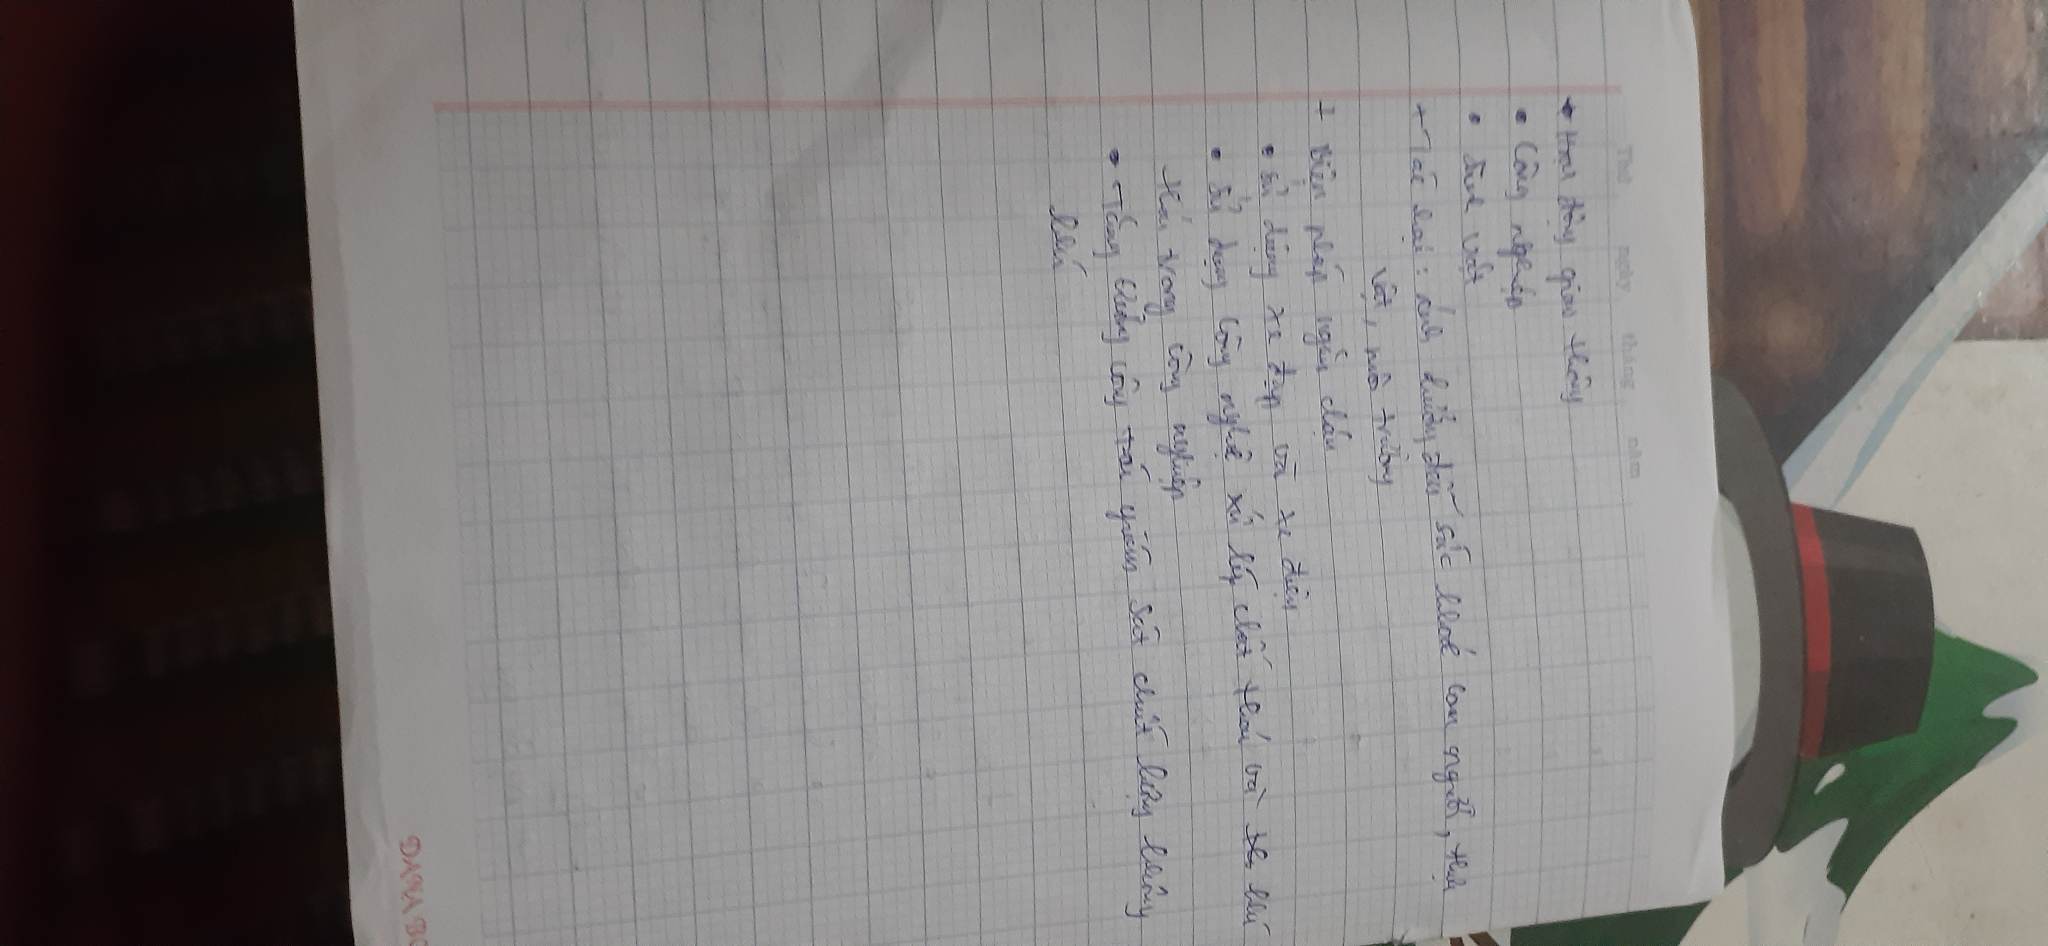 Thứ ngày tháng năm
• Hoạt động giao thông
• Công nghiệp
• Sinh vật
+ Tác hại: ảnh hưởng đến sức khoẻ con người, thực
vật, môi trường
+ Biện pháp ngăn chặn
• Sử dụng xe đạp và xe điện
• Sử dụng công nghệ xử lý chất thải và khí
thải trong công nghiệp
• Tăng cường công tác giám sát chất lượng không
khí